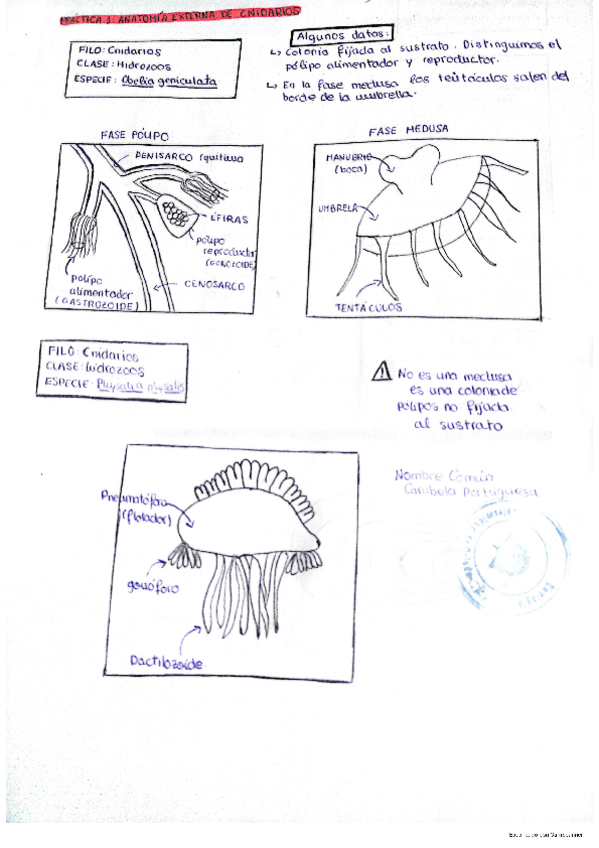 PRÁCTICA 1: ANATOMÍA EXTERNA DE CNIDARIOS
FILO: Cnidarios
CLASE: Hidrozoos
ESPECIE: Obelia geniculata
Algunos datos:
↳ Colonia fijada al sustrato. Distinguimos el
pólipo alimentador y reproductor.
↳ En la fase medusa los tentáculos salen del
borde de la umbrella.
FASE PÓLIPO
PERISARCO (quitina
ÉFIRAS
pólipo
reproductor
(GONOZOIDE)
CENOSARCO
pólipo
alimentador
(GASTROZOIDE)
FASE MEDUSA
MANUBRIO
(boca)
UMBRELA
TENTÁCULOS
FILO: Cnidarios
CLASE: hidrozoos
ESPECIE: Physalia physalis
No es una medusa
es una colonia de
pólipos no fijada
al sustrato
Nombre Común
Carabela Portuguesa
Pneumatóforo
(flotador)
gonóforo
Dactilozoide